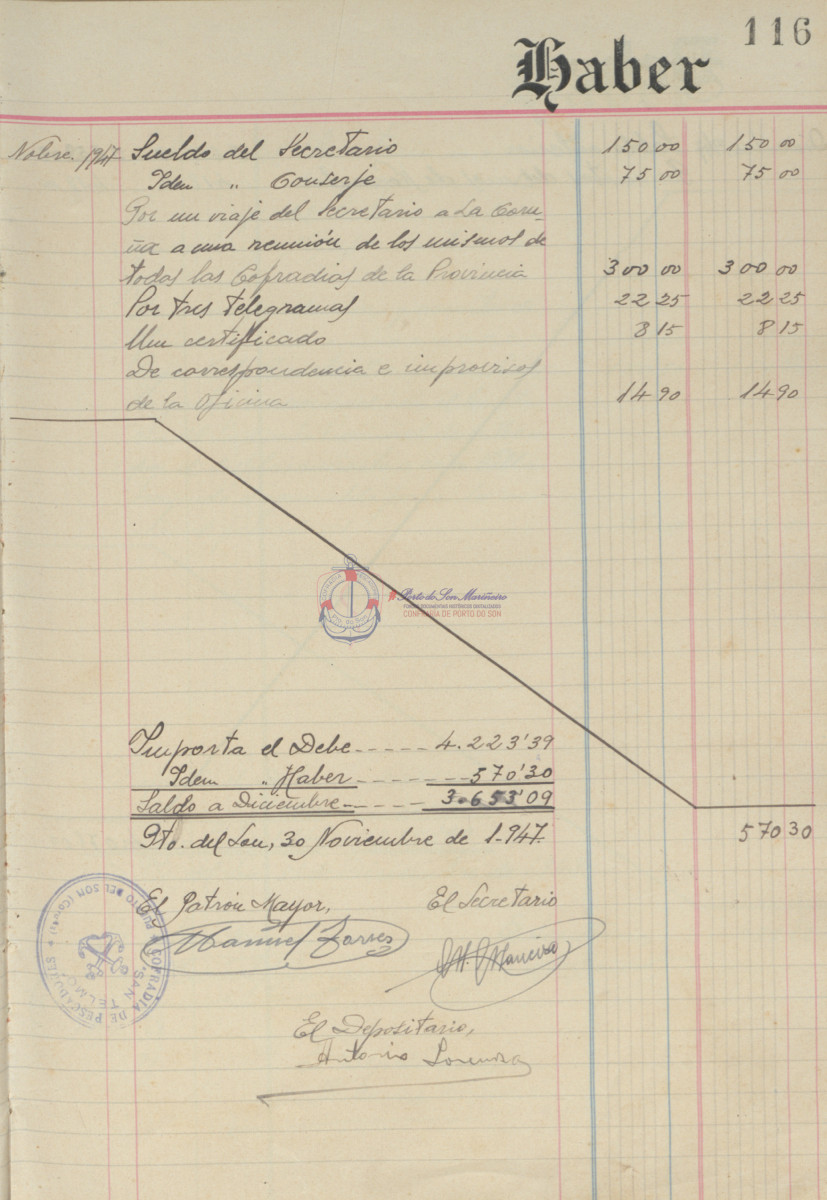 116
Haber
Nobre. 1947 Sueldo del Secretario 150 00 150 00
Idem " Conserje 75 00 75 00
Por un viaje del Secretario a La Coru-
ña a una reunión de los mismos de
todas las Cofradias de la Provincia 300 00 300 00
Por tres telegramas 22 25 22 25
Un certificado 8 15 8 15
De correspondencia e improvisos
de la Oficina 14 90 14 90
Porto do Son Mariñeiro
FONDOS DOCUMENTAIS HISTÓRICOS DIXITALIZADOS
CONFRARÍA DE PORTO DO SON
Importa el Debe ----- 4.223'39
Idem " Haber ------- 570'30
Saldo a Diciembre ----- 3.653'09
570 30
Pto. del Son, 30 Noviembre de 1.947.
El Patrón Mayor, El Secretario
Manuel Torres
COFRADIA DE PESCADORES
"SAN TELMO"
PUERTO DEL SON
El Depositario,
Antonio